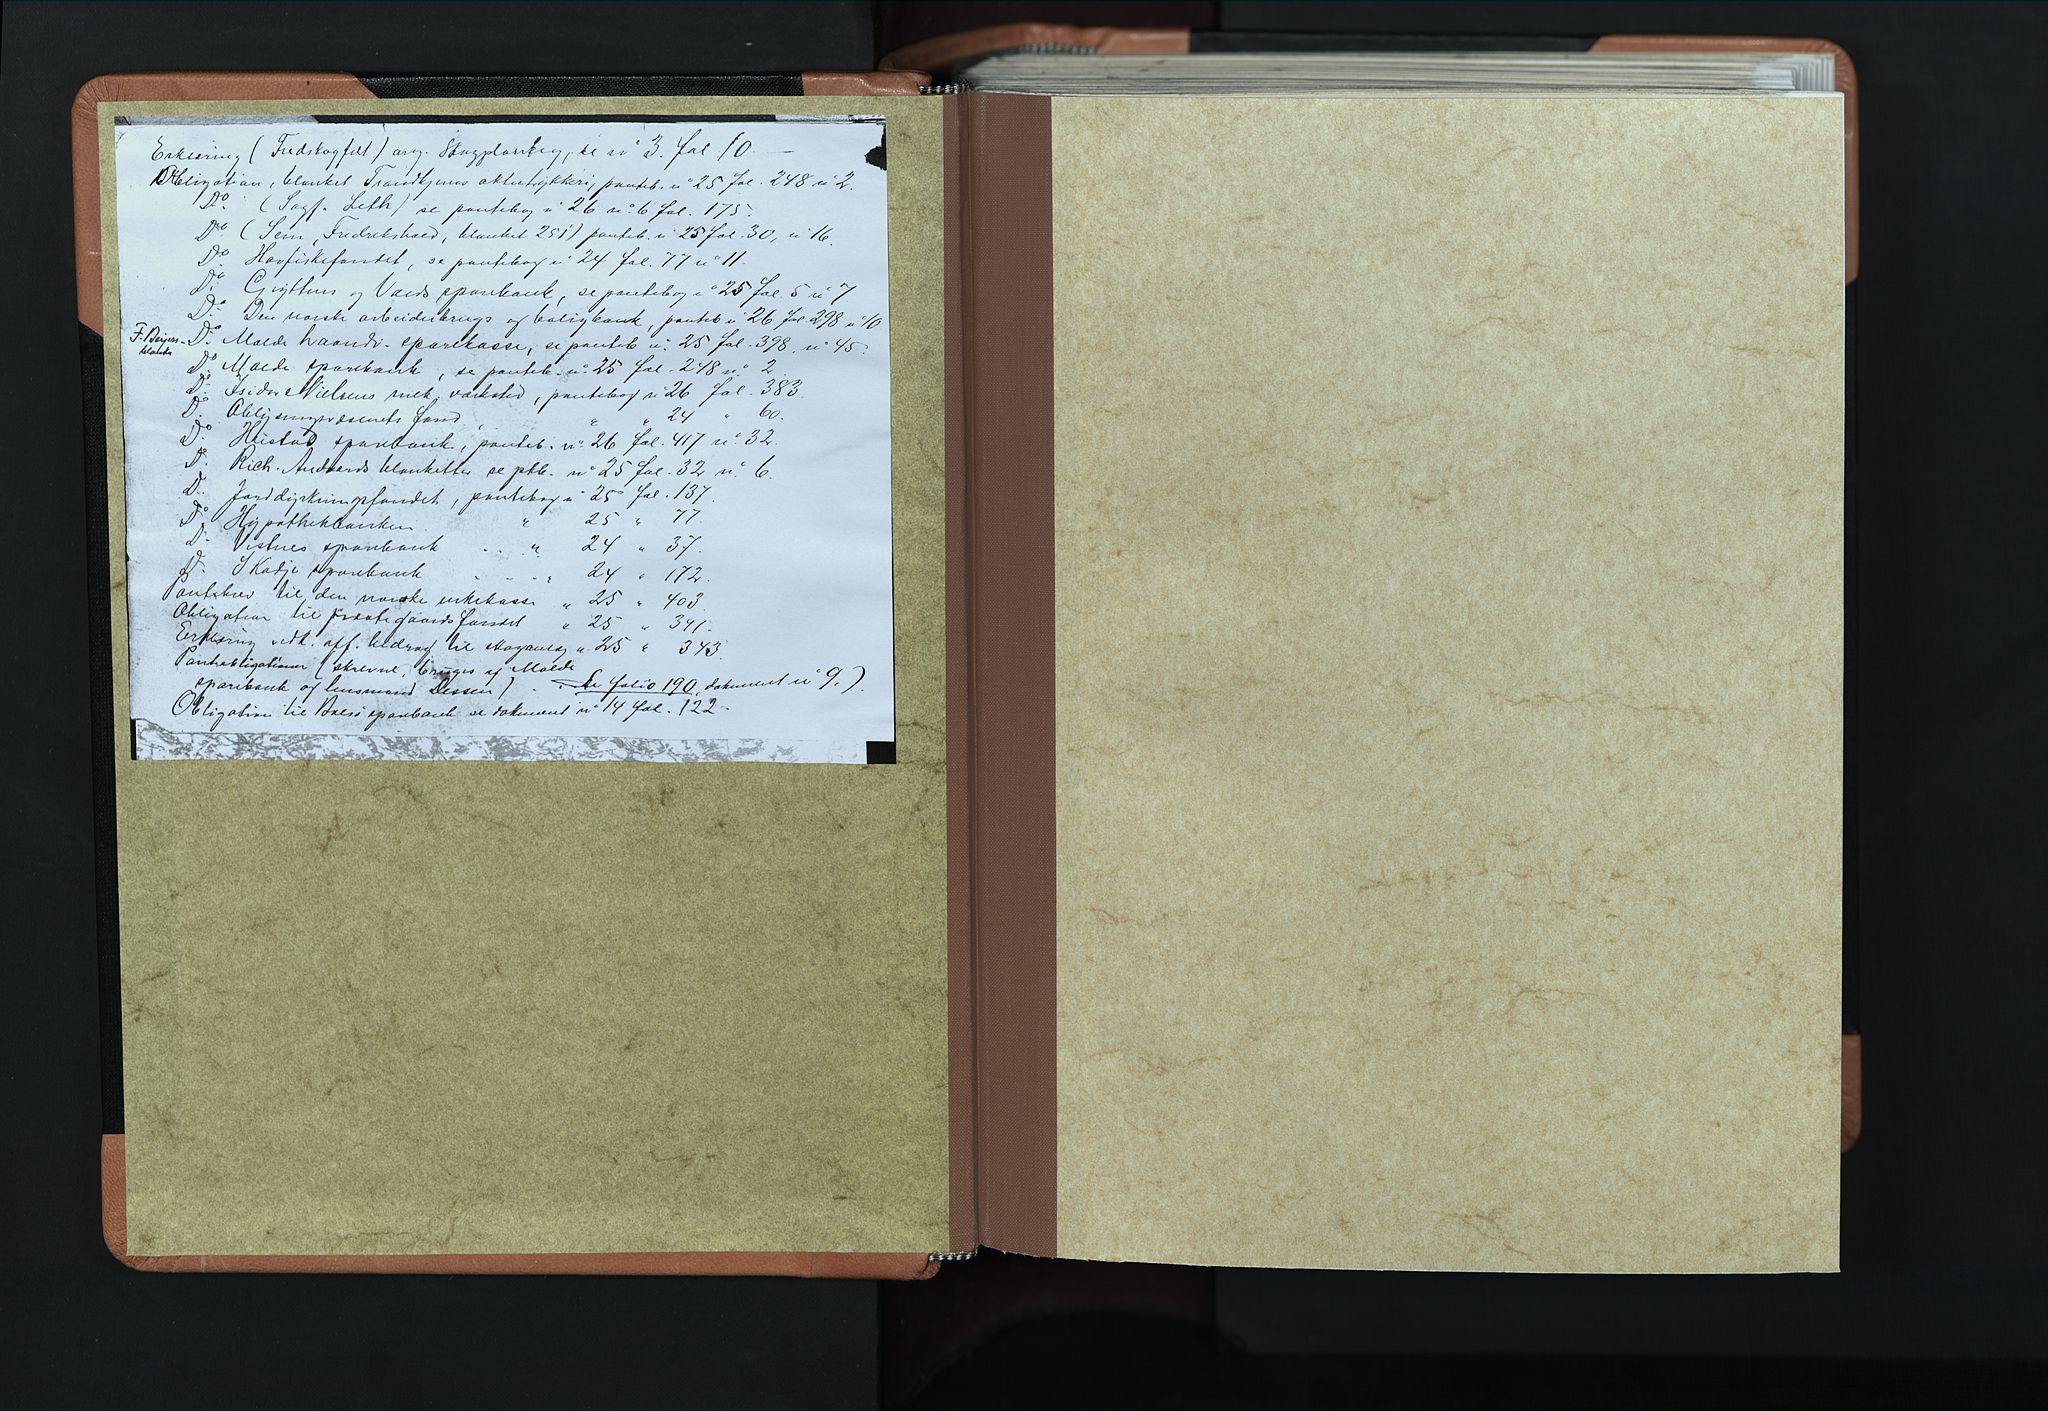 Erklæring (Fredskogfelt) ang. Skogplanting, se nº 3. fol 10
Obligation, blanket Trondhjems aktietrykkeri, panteb. nº 25 fol. 248 nº 2.
Dº (Sagf. Leth) se pantebog nº 26 nº 6 fol. 175.
Dº (Sem, Fredrikshald, blanket 251) panteb. nº 25 fol. 30, nº 16.
Dº Havfiskefondet, se pantebog nº 24 fol. 77 nº 11.
Dº Gryttens og Voids sparebank, se pantebog nº 25 fol. 5 nº 7
Dº Den norske arbeiderbrugs og boligbank, panteb nº 26 fol 298 nº 10
F. Beyers blanket Dº Molde haandv. sparekasse, se panteb nº 25 fol. 398. nº 45.
Dº Molde sparebank, se panteb. nº 25 fol. 248 nº 2
Dº Isidor Nielsens mek. værksted, pantebog nº 26 fol. 383.
Dº Oplysningsvæsenets fond, " " 24 " 60.
Dº Hustad sparebank, panteb. nº 26 fol. 417 nº 32.
Dº Rich. Andvords blanketter se ptb. nº 25 fol. 32 nº 6.
Dº Jorddyrkningsfondet, pantebog nº 25 fol. 137
Dº Hypothekbanken " 25 " 77
Dº Vestnes sparebank " 24 " 37.
Dº Skodje sparebank " 24 " 172.
Pantebrev til den norske enkekasse " 25 " 403
Obligation til præstegaardsfondet " 25 " 341.
Erklæring vedk. off. bidrag til skoganlæg " 25 " 343
Pantobligationer (skrevne, bruges af Molde
sparebank og lensmand Dessen) Se folio 190, dokument nº 9.).
Obligation til Bolsø sparebank se dokument nº 14 fol. 122.